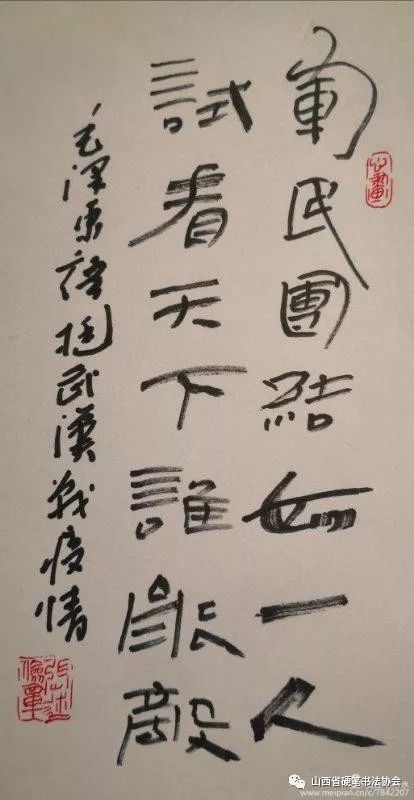 軍民團結如一人
試看天下誰能敵
毛澤東語挺武漢战疫情
心畫
山西省硬笔书法协会
www.meipian.cn/c/7842207